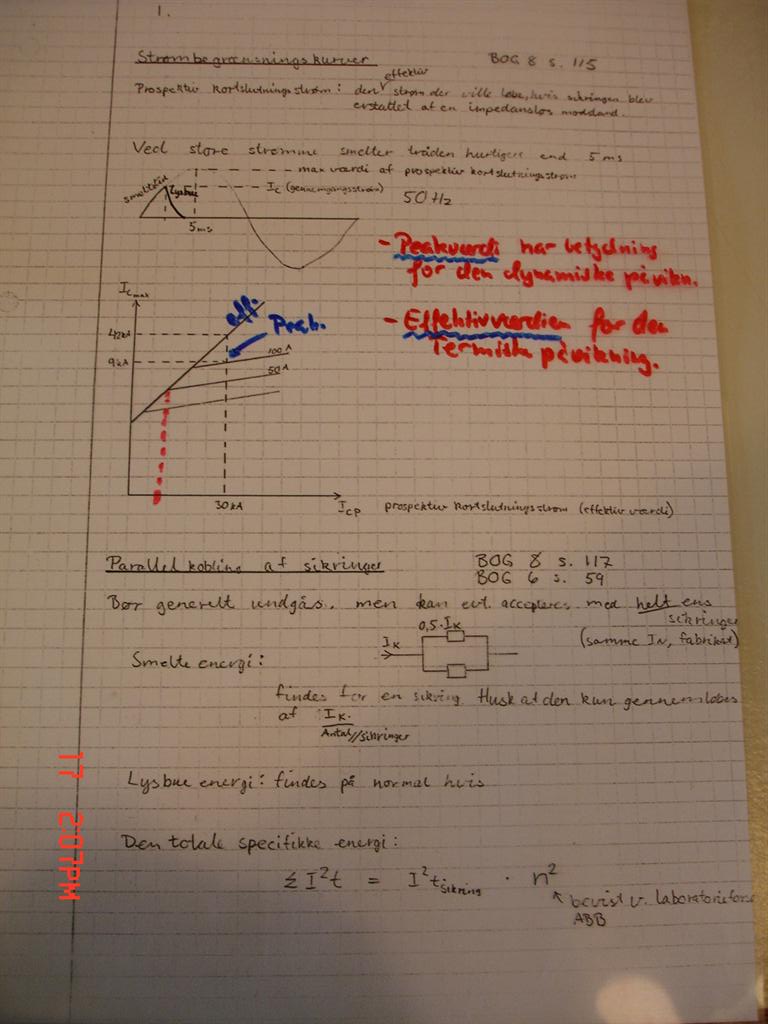 1.
Strømbegrænsningskurver BOG 8 s. 115
effektiv
Prospektiv kortslutningsstrøm: den strøm der ville løbe, hvis sikringen blev
erstattet af en impedansløs modstand.
Ved store strømme smelter tråden hurtigere end 5 ms
max værdi af prospektiv kortslutningsstrøm
smeltetid Lysbue Ic (gennemgangsstrøm) 50 Hz
5ms
- Peakværdi har betydning
for den dynamiske påvirkn.
Ic max
eff.
42kA Peak.
- Effektivværdien for den
Termiske påvirkning.
9kA 100 A
50 A
30 kA Icp prospektiv kortslutningsstrøm (effektiv værdi)
Parallelkobling af sikringer BOG 8 s. 117
BOG 6 s. 59
Bør generelt undgås, men kan evt. accepteres med helt ens
sikringer
(samme IN, fabrikat)
0,5·IK
IK
Smelte energi:
findes for en sikring Husk at den kun gennemløbes
af IK.
Antal//sikringer
Lysbue energi: findes på normal hvis
Den totale specifikke energi:
Σ I²t = I²t sikring · n²
bevist v. laboratorieforsø
ABB
17 2:07PM